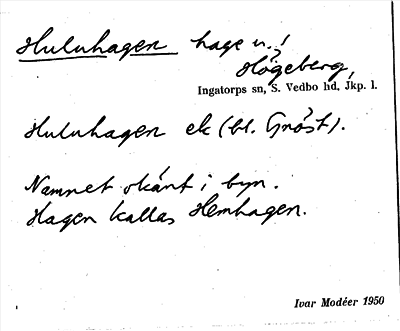 Huluhagen hage u.!
Högeberg,
Ingatorps sn, S. Vedbo hd, Jkp. l.
Huluhagen ek (bl. Gröst).
Namnet okänt i byn.
Hagen kallas Hemhagen.
Ivar Modéer 1950